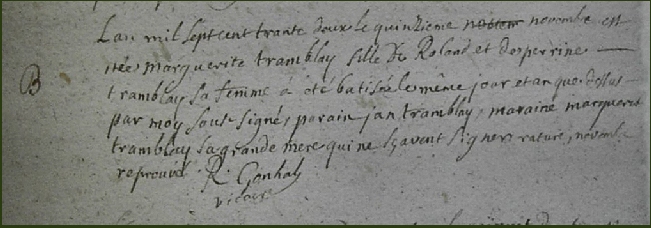 Lan mil sept cent trante deux le quinzieme novembe est
née marguerite tramblay fille De Roland et de perrine
B
tramblay sa femme a été batisée le même jour et an que dessus
par moy sous signé, parain jan tramblay, maraine marguerit
tramblay sa grande mere qui ne sçavent signer, rature, novemb
reprouvé R. Gonhal
vicaire